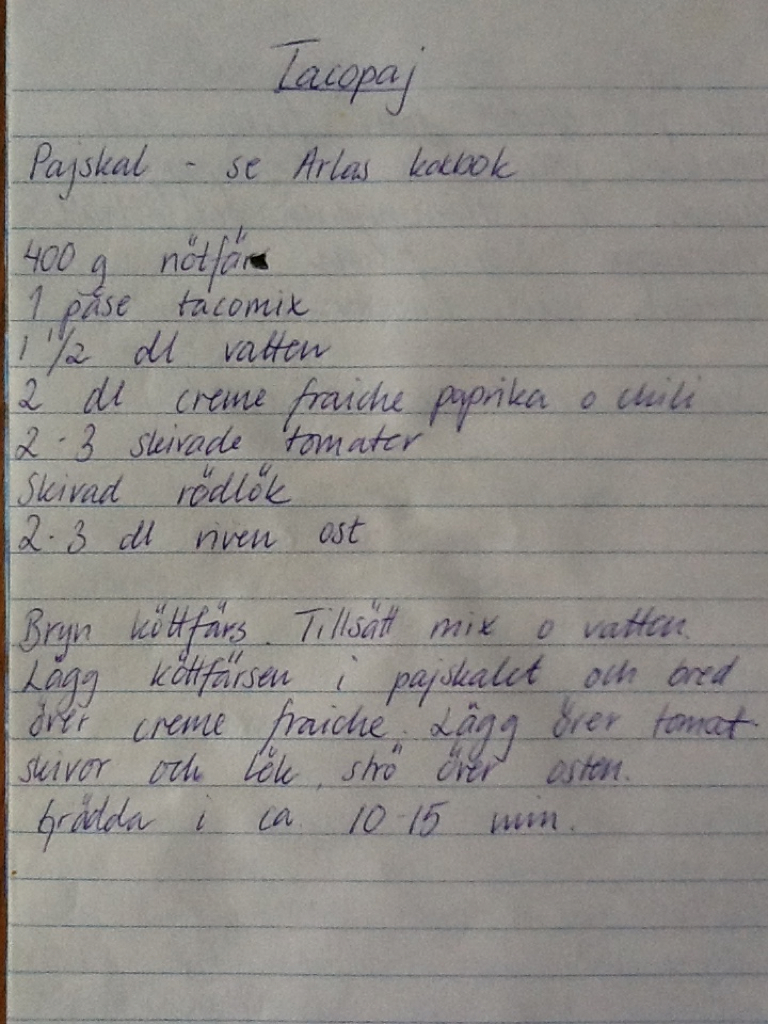 Tacopaj
Pajskal - se Arlas kokbok
400 g nötfärs
1 påse tacomix
1 1/2 dl vatten
2 dl creme fraiche paprika o chili
2-3 skivade tomater
Skivad rödlök
2-3 dl riven ost
Bryn köttfärs. Tillsätt mix o vatten.
Lägg köttfärsen i pajskalet och bred
över creme fraiche. Lägg över tomat-
skivor och lök, strö över osten.
Grädda i ca 10-15 min.